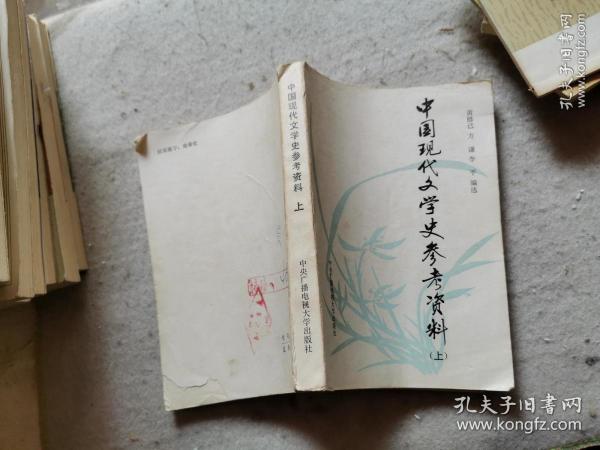 中国现代文学史参考资料
(上)
黄修己 方 谦 李 平 编选
中国现代文学史参考资料 上
中央广播电视大学出版社
孔夫子旧书网
www.kongfz.com
孔夫子旧书网
www.kongfz.com